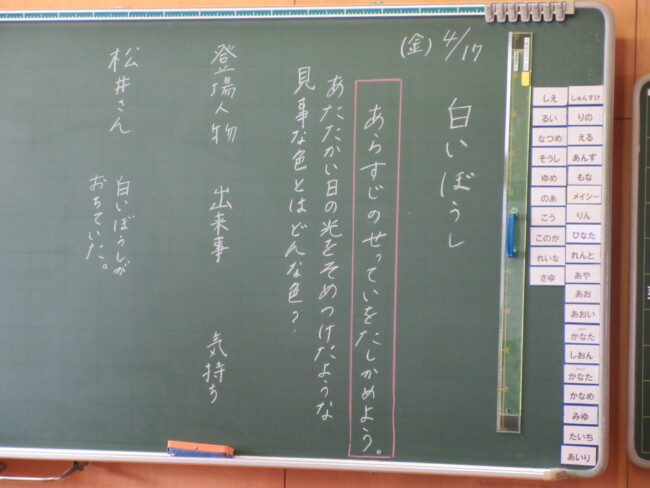 4/17
(金)
白いぼうし
あらすじのせっていをたしかめよう。
あたたかい日の光をそめつけたような
見事な色とはどんな色?
登場人物 出来事 気持ち
松井さん 白いぼうしが
おちていた。
しゅんすけ
りの
える
あんず
もな
メイシー
りん
ひなた
れんと
あや
あお
あおい
かなた
しおん
かなた
かなめ
みゆ
たいち
あいり
しえ
るい
なつめ
そうし
ゆめ
のあ
こう
このか
れいな
さゆ